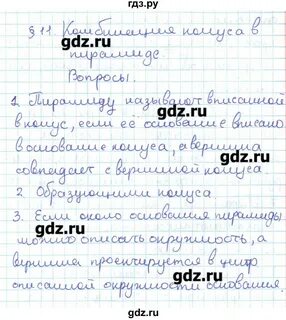 gdz.ru
§ 11 Комбинация конуса и
пирамиды.
Вопросы.
1. Пирамиду называют вписанной
в конус, если её основание вписано
в основание конуса, а вершина
совпадает с вершиной конуса.
2. Образующими конуса.
3. Если около основания пирамиды
можно описать окружность, а
вершина проектируется в центр
описанной окружности основания.
gdz.ru
gdz.ru
gdz.ru
gdz.ru
gdz.ru
gdz.ru